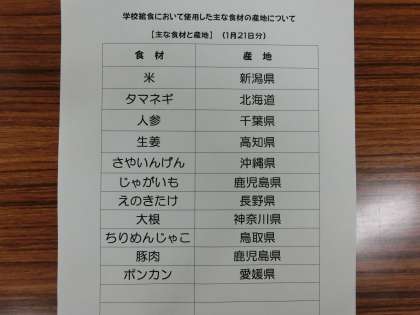 学校給食において使用した主な食材の産地について
【主な食材と産地】（1月21日分）
食材 産地
米 新潟県
タマネギ 北海道
人参 千葉県
生姜 高知県
さやいんげん 沖縄県
じゃがいも 鹿児島県
えのきたけ 長野県
大根 神奈川県
ちりめんじゃこ 鳥取県
豚肉 鹿児島県
ポンカン 愛媛県